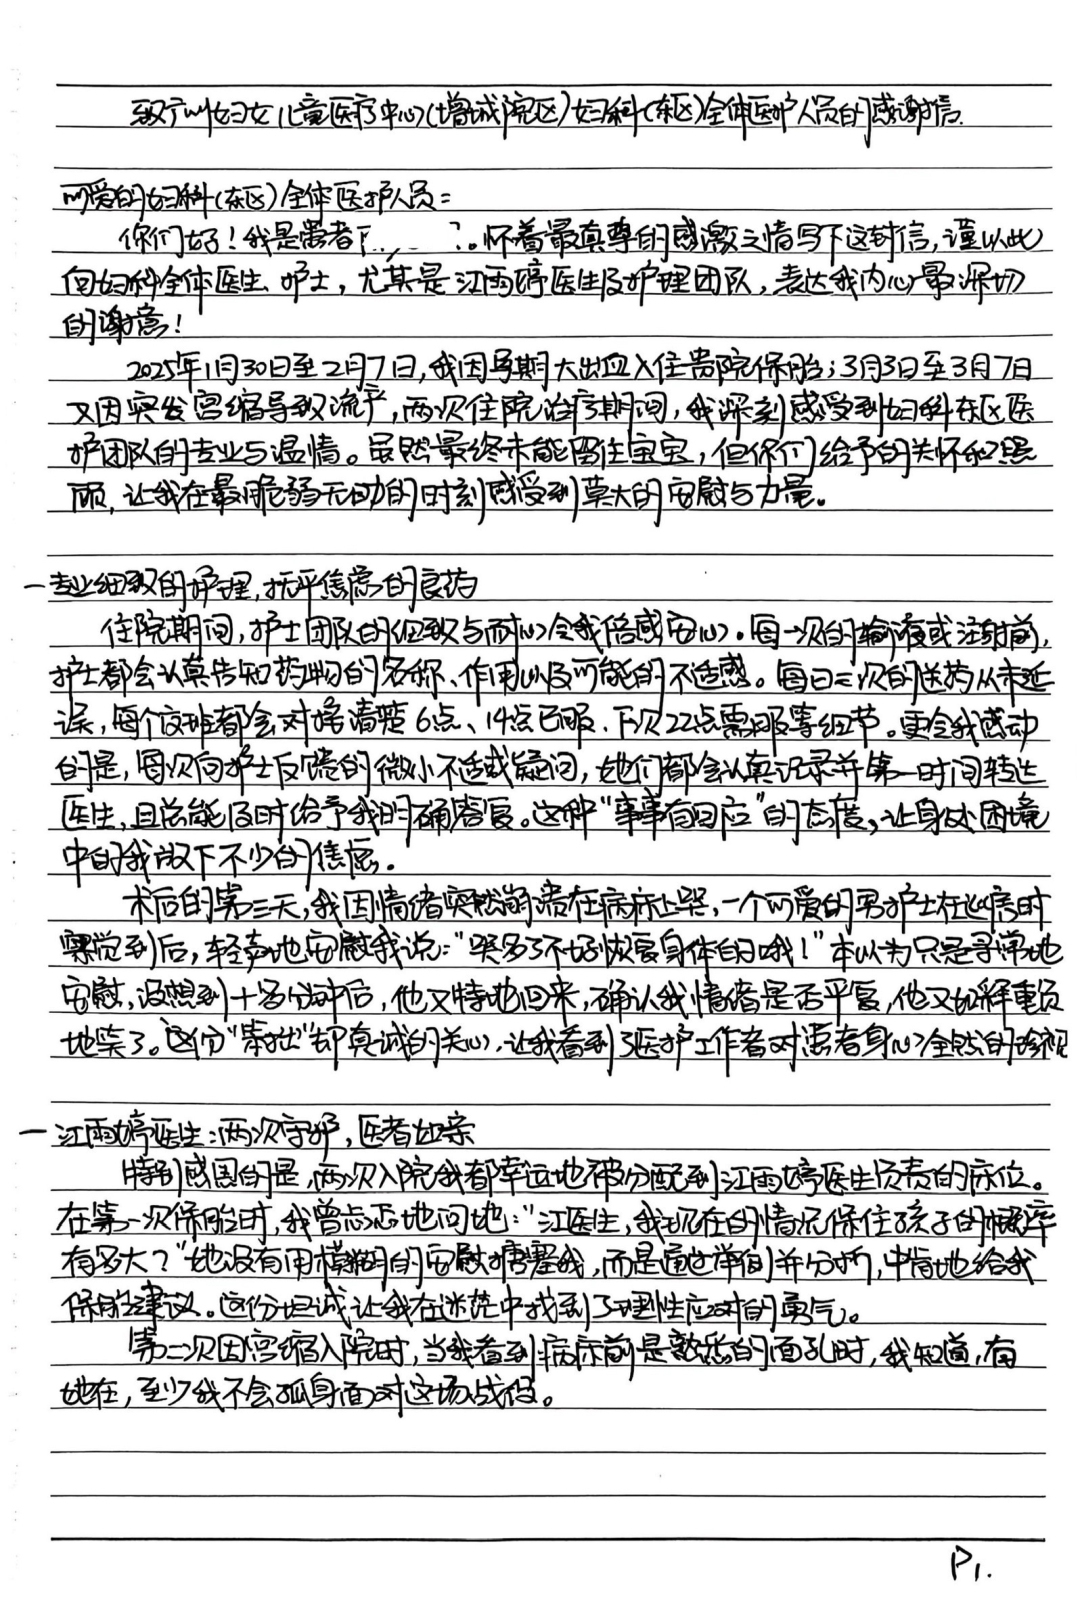 致广州妇女儿童医疗中心(增城院区)妇科(东区)全体医护人员的感谢信.
可爱的妇科(东区)全体医护人员:
你们好!我是患者 。怀着最真挚的感激之情写下这封信,谨以此
向妇科全体医生、护士,尤其是江雨婷医生及护理团队,表达我内心最深切
的谢意!
2025年1月30日至2月7日,我因孕期大出血入住贵院保胎;3月3日至3月7日
又因突发宫缩导致流产,两次住院治疗期间,我深刻感受到妇科东区医
护团队的专业与温情。虽然最终未能留住宝宝,但你们给予的关怀和照
顾,让我在最脆弱无助的时刻感受到莫大的安慰与力量。
一专业细致的护理,抚平焦虑的良药
住院期间,护士团队的细致与耐心令我倍感安心。每一次的输液或注射前,
护士都会认真告知药物的名称、作用以及可能的不适感。每日三次的送药从未延
误,每个夜班都会交代清楚6点、14点已服、下次22点需服等细节。更令我感动
的是,每次向护士反馈的微小不适或疑问,她们都会认真记录并第一时间转达
医生,且总能及时给予我明确答复。这种“事事有回应”的态度,让身处困境
中的我放下不少的焦虑.
术后的第三天,我因情绪突然崩溃在病床上哭,一个可爱的男护士在巡房时
察觉到后,轻声地安慰我说:“哭多了不好恢复身体的哦!”本以为只是寻常地
安慰,没想到十多分钟后,他又特地回来,确认我情绪是否平复,他又如释重负
地笑了。这份“笨拙”却真诚的关心,让我看到了医护工作者对患者身心全然的珍视
一江雨婷医生:两次守护,医者如亲
特别感恩的是,两次入院我都幸运地被分配到江雨婷医生负责的床位。
在第一次保胎时,我曾忐忑地问她:“江医生,我现在的情况保住孩子的概率
有多大?”她没有用模糊的安慰搪塞我,而是通过举例并分析,中肯地给我
保胎建议。这份坦诚让我在迷茫中找到了理性应对的勇气。
第二次因宫缩入院时,当我看到病床前是熟悉的面孔时,我知道,有
她在,至少我不会孤身面对这场战役。
P1.